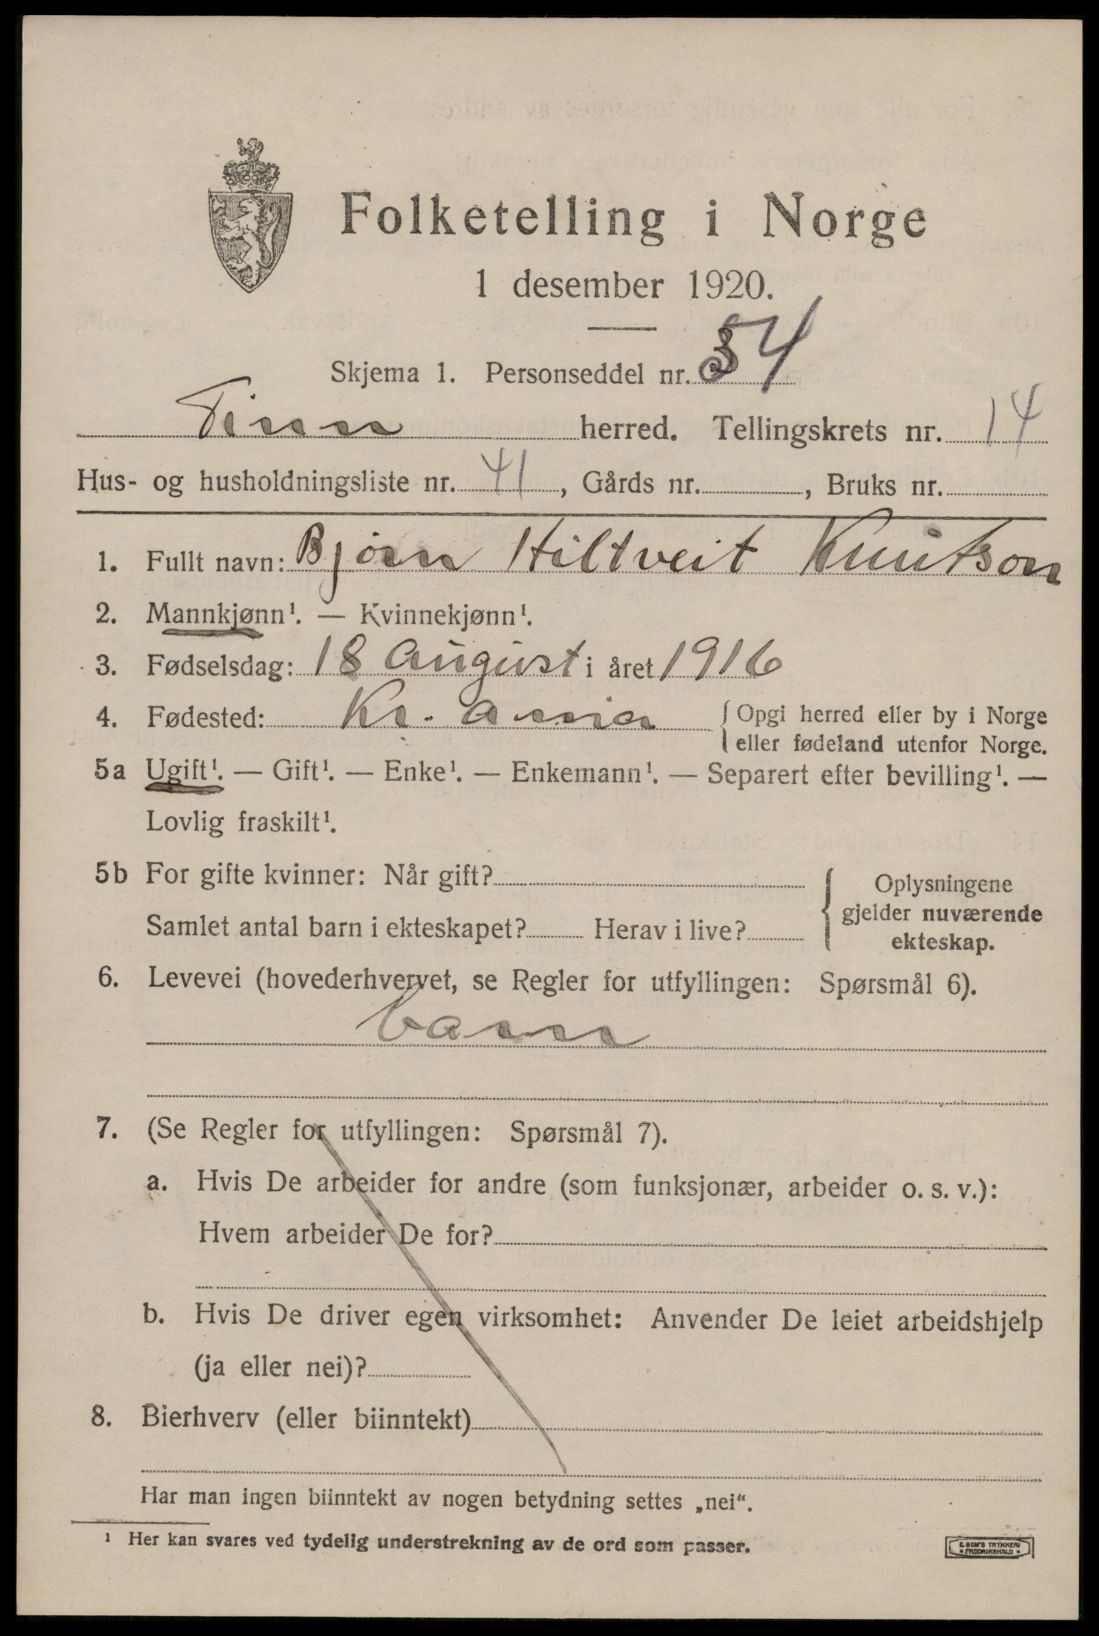 Folketelling i Norge
1 desember 1920.
Skjema 1. Personseddel nr. 34
Tinn herred. Tellingskrets nr. 14
Hus- og husholdningsliste nr. 41, Gårds nr. , Bruks nr.
1. Fullt navn: Bjørn Hiltveit Knutson
2. Mannkjønn¹. — Kvinnekjønn¹.
3. Fødselsdag: 18 August i året 1916
4. Fødested: Kr.ania { Opgi herred eller by i Norge
eller fødeland utenfor Norge.
5a Ugift¹. — Gift¹. — Enke¹. — Enkemann¹. — Separert efter bevilling¹. —
Lovlig fraskilt¹.
5b For gifte kvinner: Når gift?
Samlet antal barn i ekteskapet? Herav i live?
{ Oplysningene
gjelder nuværende
ekteskap.
6. Levevei (hovederhvervet, se Regler for utfyllingen: Spørsmål 6).
barn
7. (Se Regler for utfyllingen: Spørsmål 7).
a. Hvis De arbeider for andre (som funksjonær, arbeider o. s. v.):
Hvem arbeider De for?
b. Hvis De driver egen virksomhet: Anvender De leiet arbeidshjelp
(ja eller nei)?
8. Bierhverv (eller biinntekt)
Har man ingen biinntekt av nogen betydning settes „nei“.
¹ Her kan svares ved tydelig understrekning av de ord som passer.
E. SEM'S TRYKKERI
• FREDRIKSHALD •